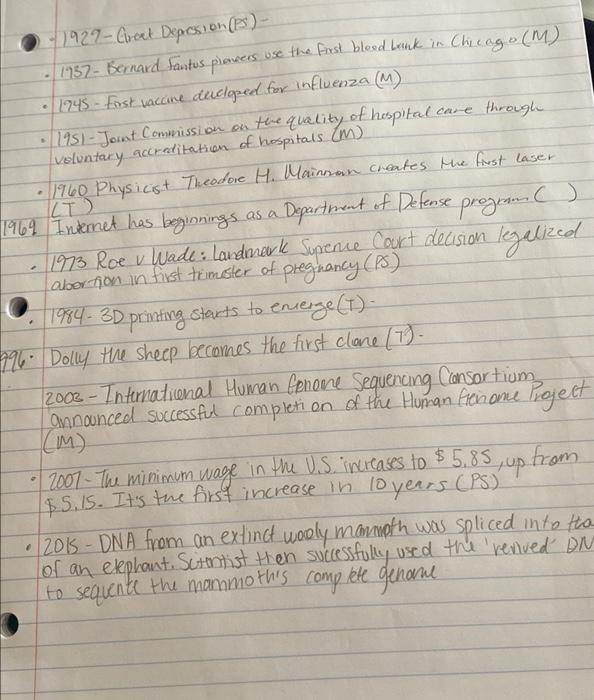 - 1929 - Great Depression (PS) -
• 1937 - Bernard Fantus pioneers use the first blood bank in Chicago (M)
• 1945 - First vaccine developed for influenza (M)
• 1951 - Joint Commission on the quality of hospital care through
voluntary accreditation of hospitals (M)
• 1960 Physicist Theodore H. Mainman creates the first laser
(T)
1969 Internet has beginnings as a Department of Defense program ( )
• 1973 Roe v Wade: Landmark Supreme Court decision legalized
abortion in first trimester of pregnancy (PS)
• 1984 - 3D printing starts to emerge (T) -
996• Dolly the sheep becomes the first clone (T) -
2003 - International Human Genome Sequencing Consortium
announced successful completion of the Human Genome Project
(M)
• 2007 - The minimum wage in the U.S. increases to $5.85, up from
$5.15. It's the first increase in 10 years (PS)
• 2015 - DNA from an extinct wooly mammoth was spliced into tha
of an elephant. Scientist then successfully used the 'revived' DN
to sequence the mammoth's complete genome